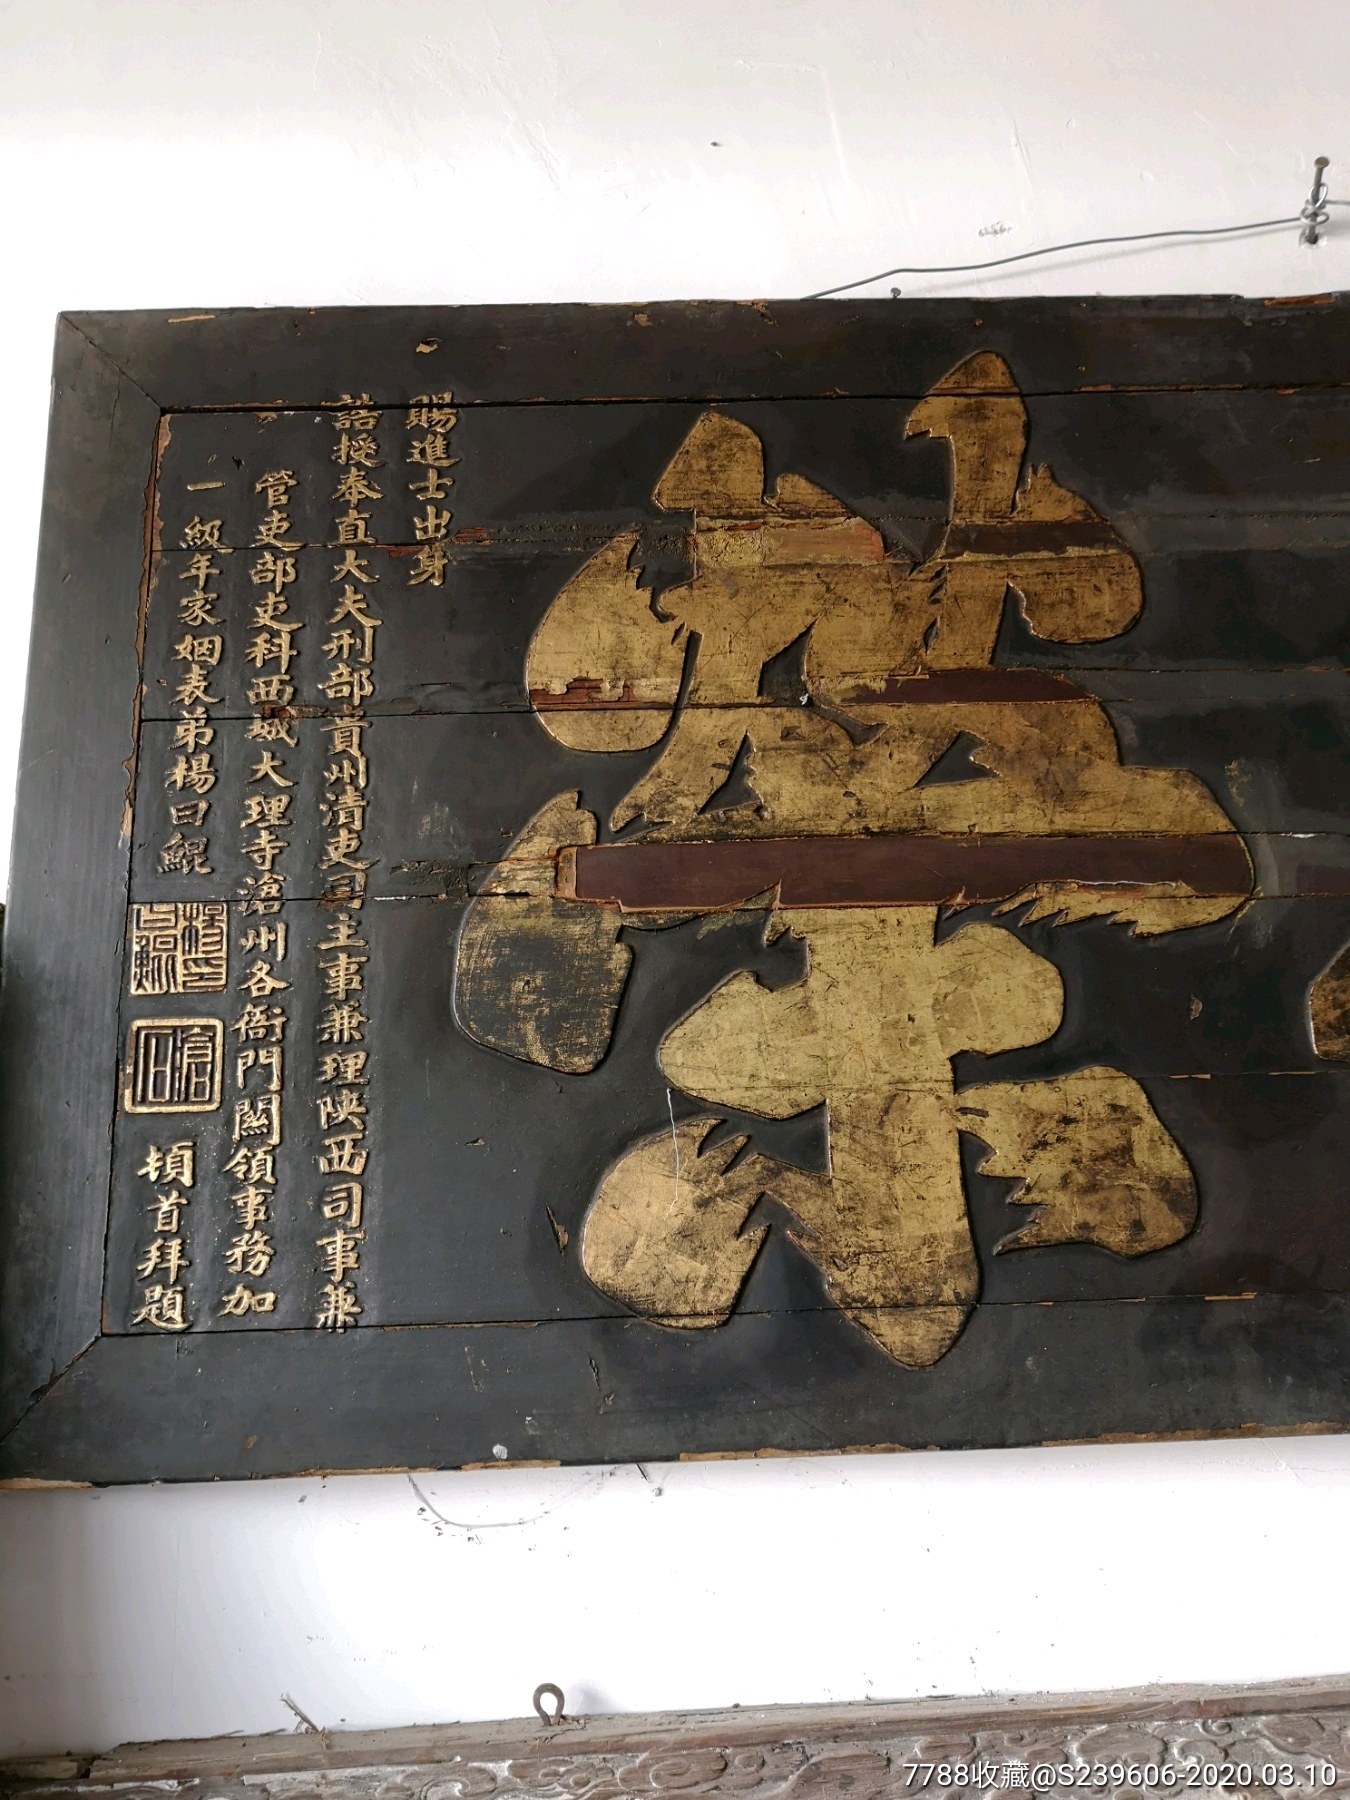 榮
賜進士出身
誥授奉直大夫刑部貴州清吏司主事兼理陝西司事兼
管吏部吏科西城大理寺滄州各衙門關領事務加
一級年家姻表弟楊曰鯤
楊印曰鯤
頓首拜題
7788收藏@S239606-2020.03.10